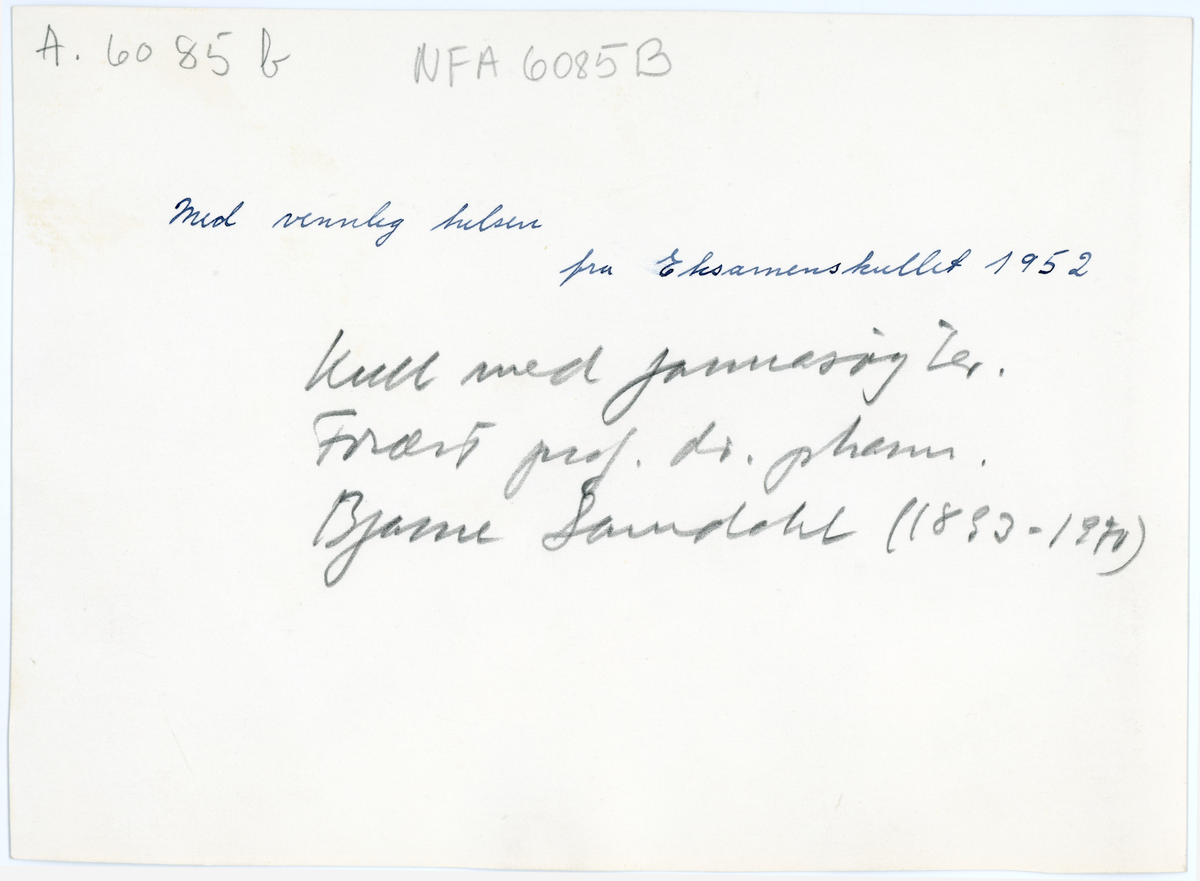 A. 6085 b NFA 6085B
Med vennlig hilsen
fra Eksamenskullet 1952
Kull med farmasøyter.
Forært prof. dr. pharm.
Bjarne Samdahl (1893-1970)